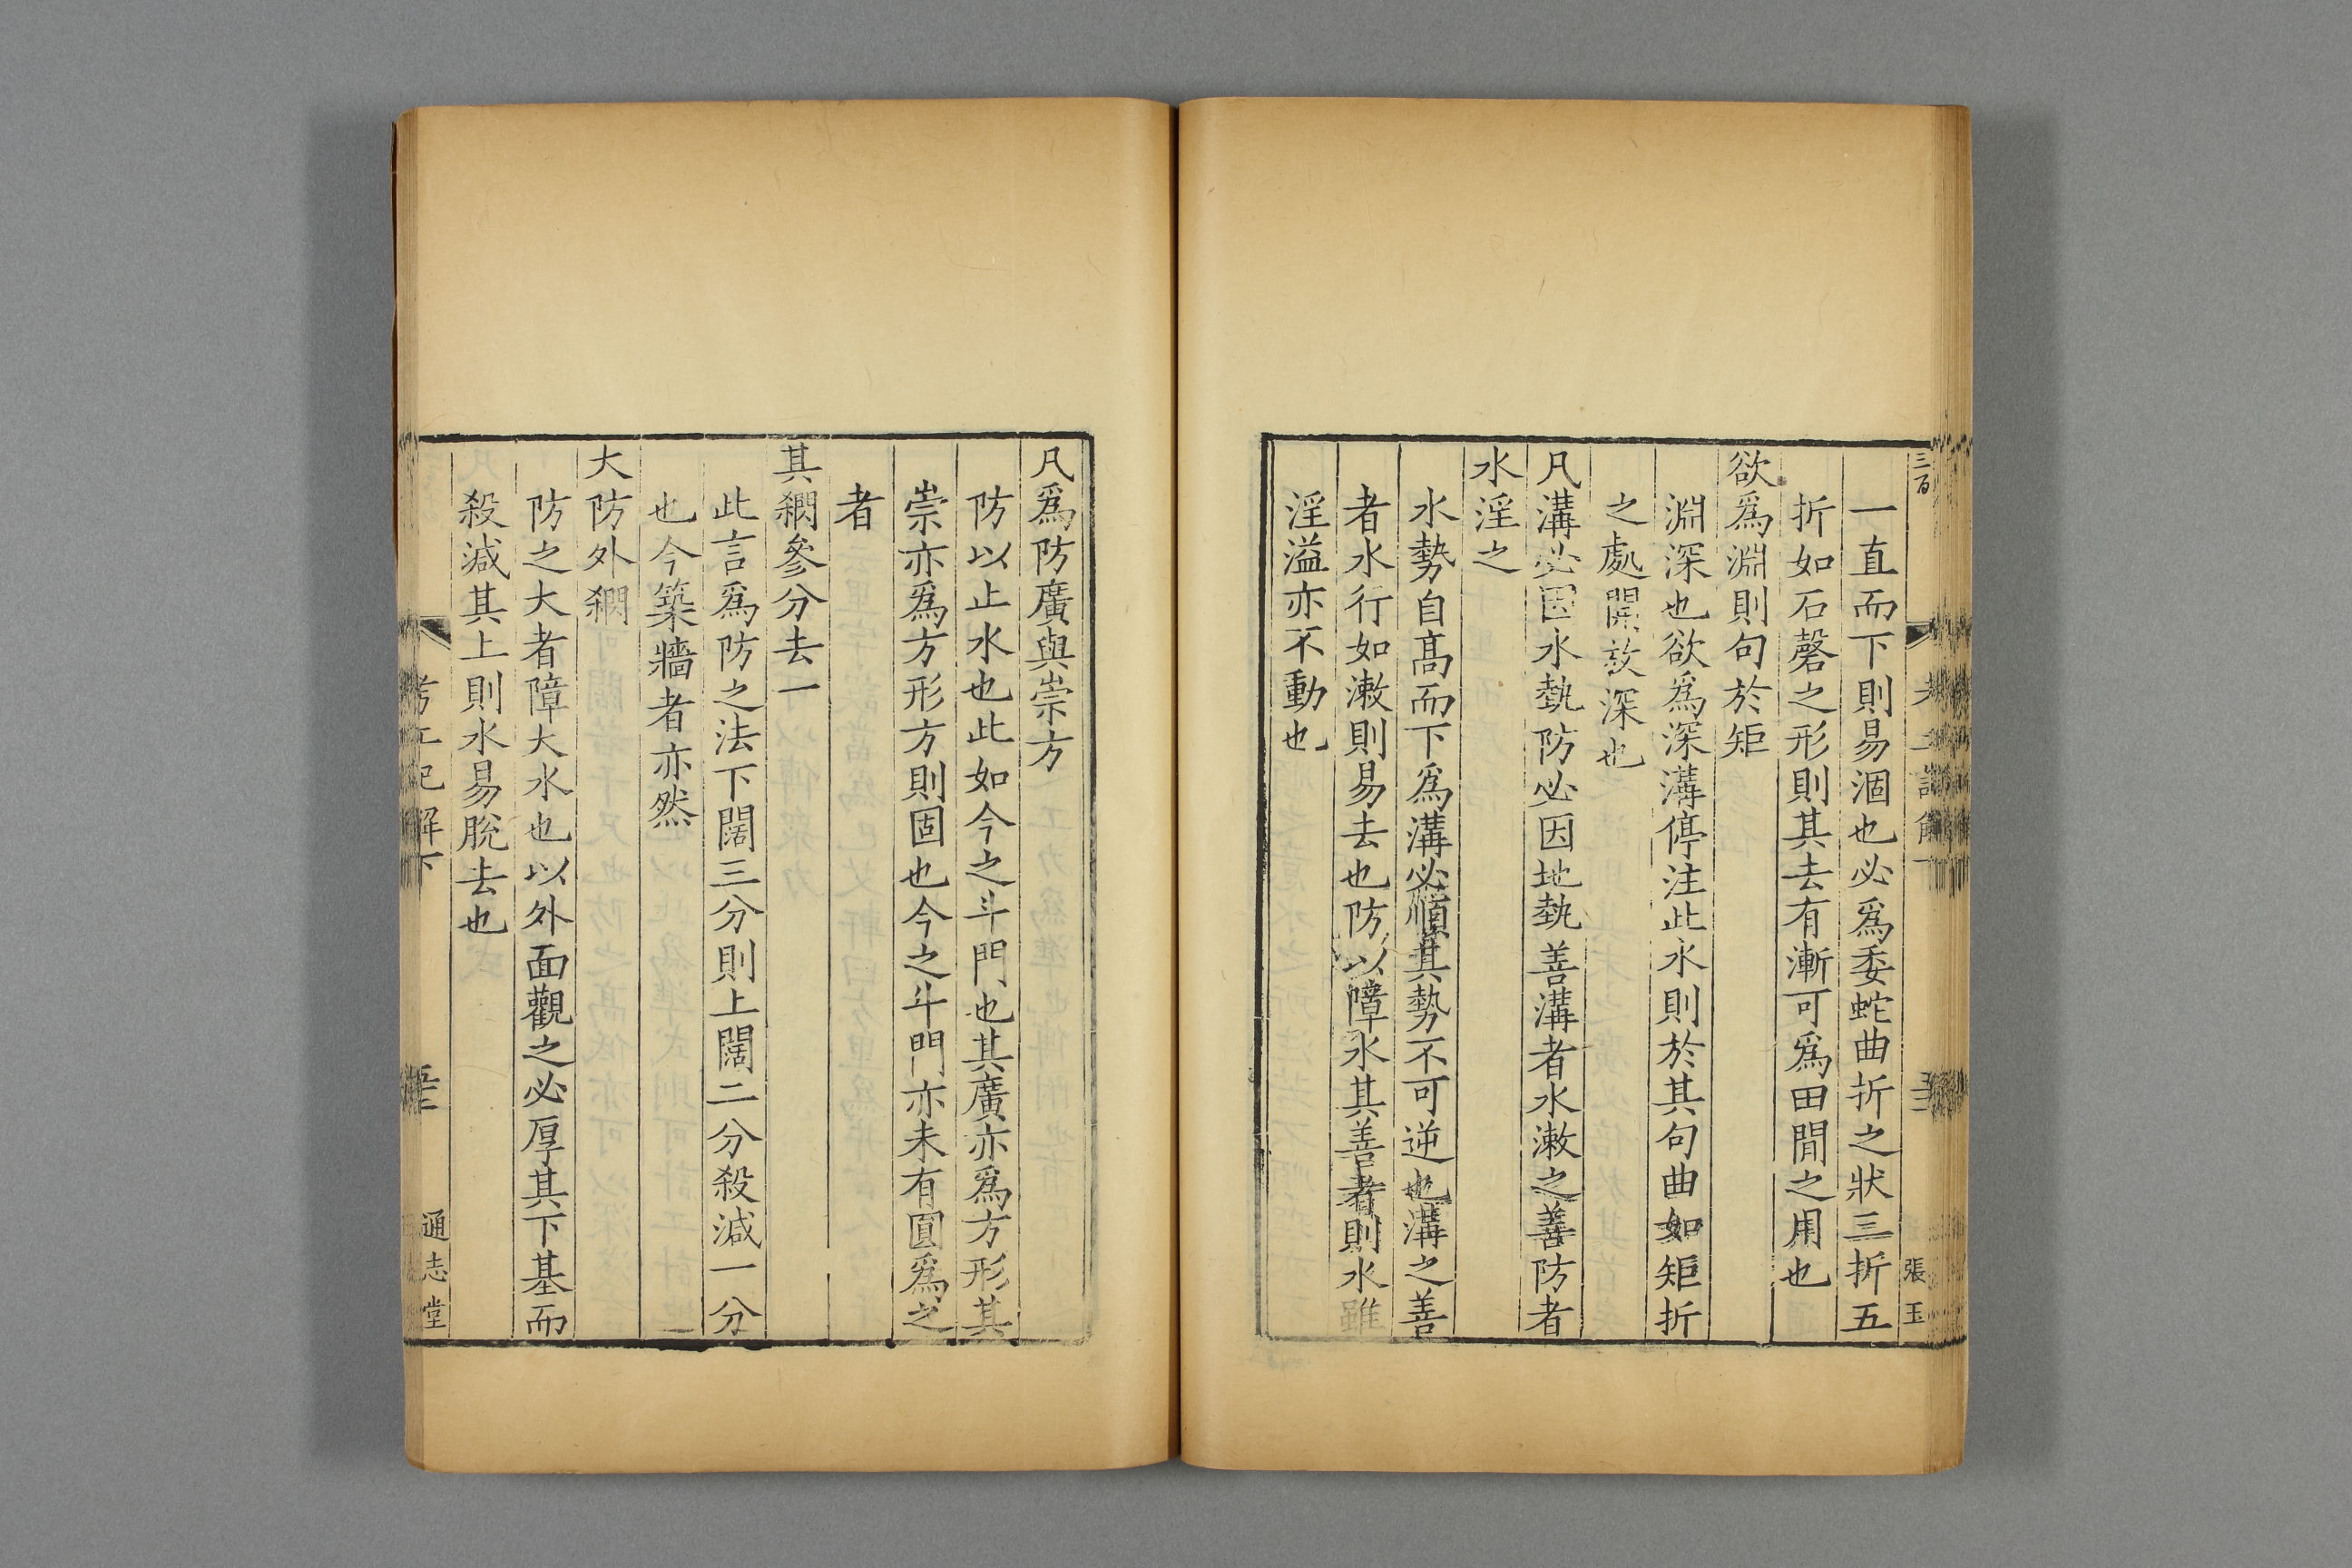 三百
張玉
一直而下則易涸也必爲委蛇曲折之狀三折五
折如石磬之形則其去有漸可爲田間之用也
欲爲淵則句於矩
淵深也欲爲深溝停注此水則於其句曲如矩折
之處開放深也
凡溝必因水埶防必因地埶善溝者水漱之善防者
水淫之
水勢自高而下爲溝必順其勢不可逆也溝之善
者水行如漱則易去也防以障水其善者則水雖
淫溢亦不動也
凡爲防廣與崇方
防以止水也此如今之斗門也其廣亦爲方形其
崇亦爲方形方則固也今之斗門亦未有圓爲之
者
其䋛參分去一
此言爲防之法下闊三分則上闊二分殺減一分
也今築牆者亦然
大防外䋛
防之大者障大水也以外面觀之必厚其下基而
殺減其上則水易脫去也
考工記解下
通志堂